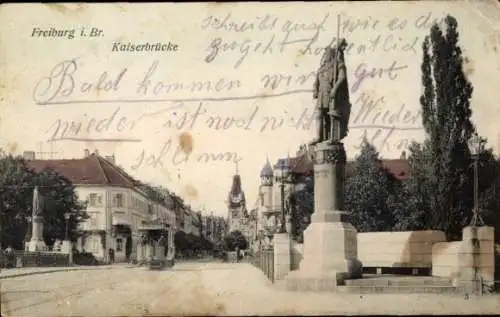 Freiburg i. Br.
Kaiserbrücke
Schreibt auch wie es d
geht
hoffentlich gut
Bald kommen wir
Wieder
wieder ist noch nicht
schlimm